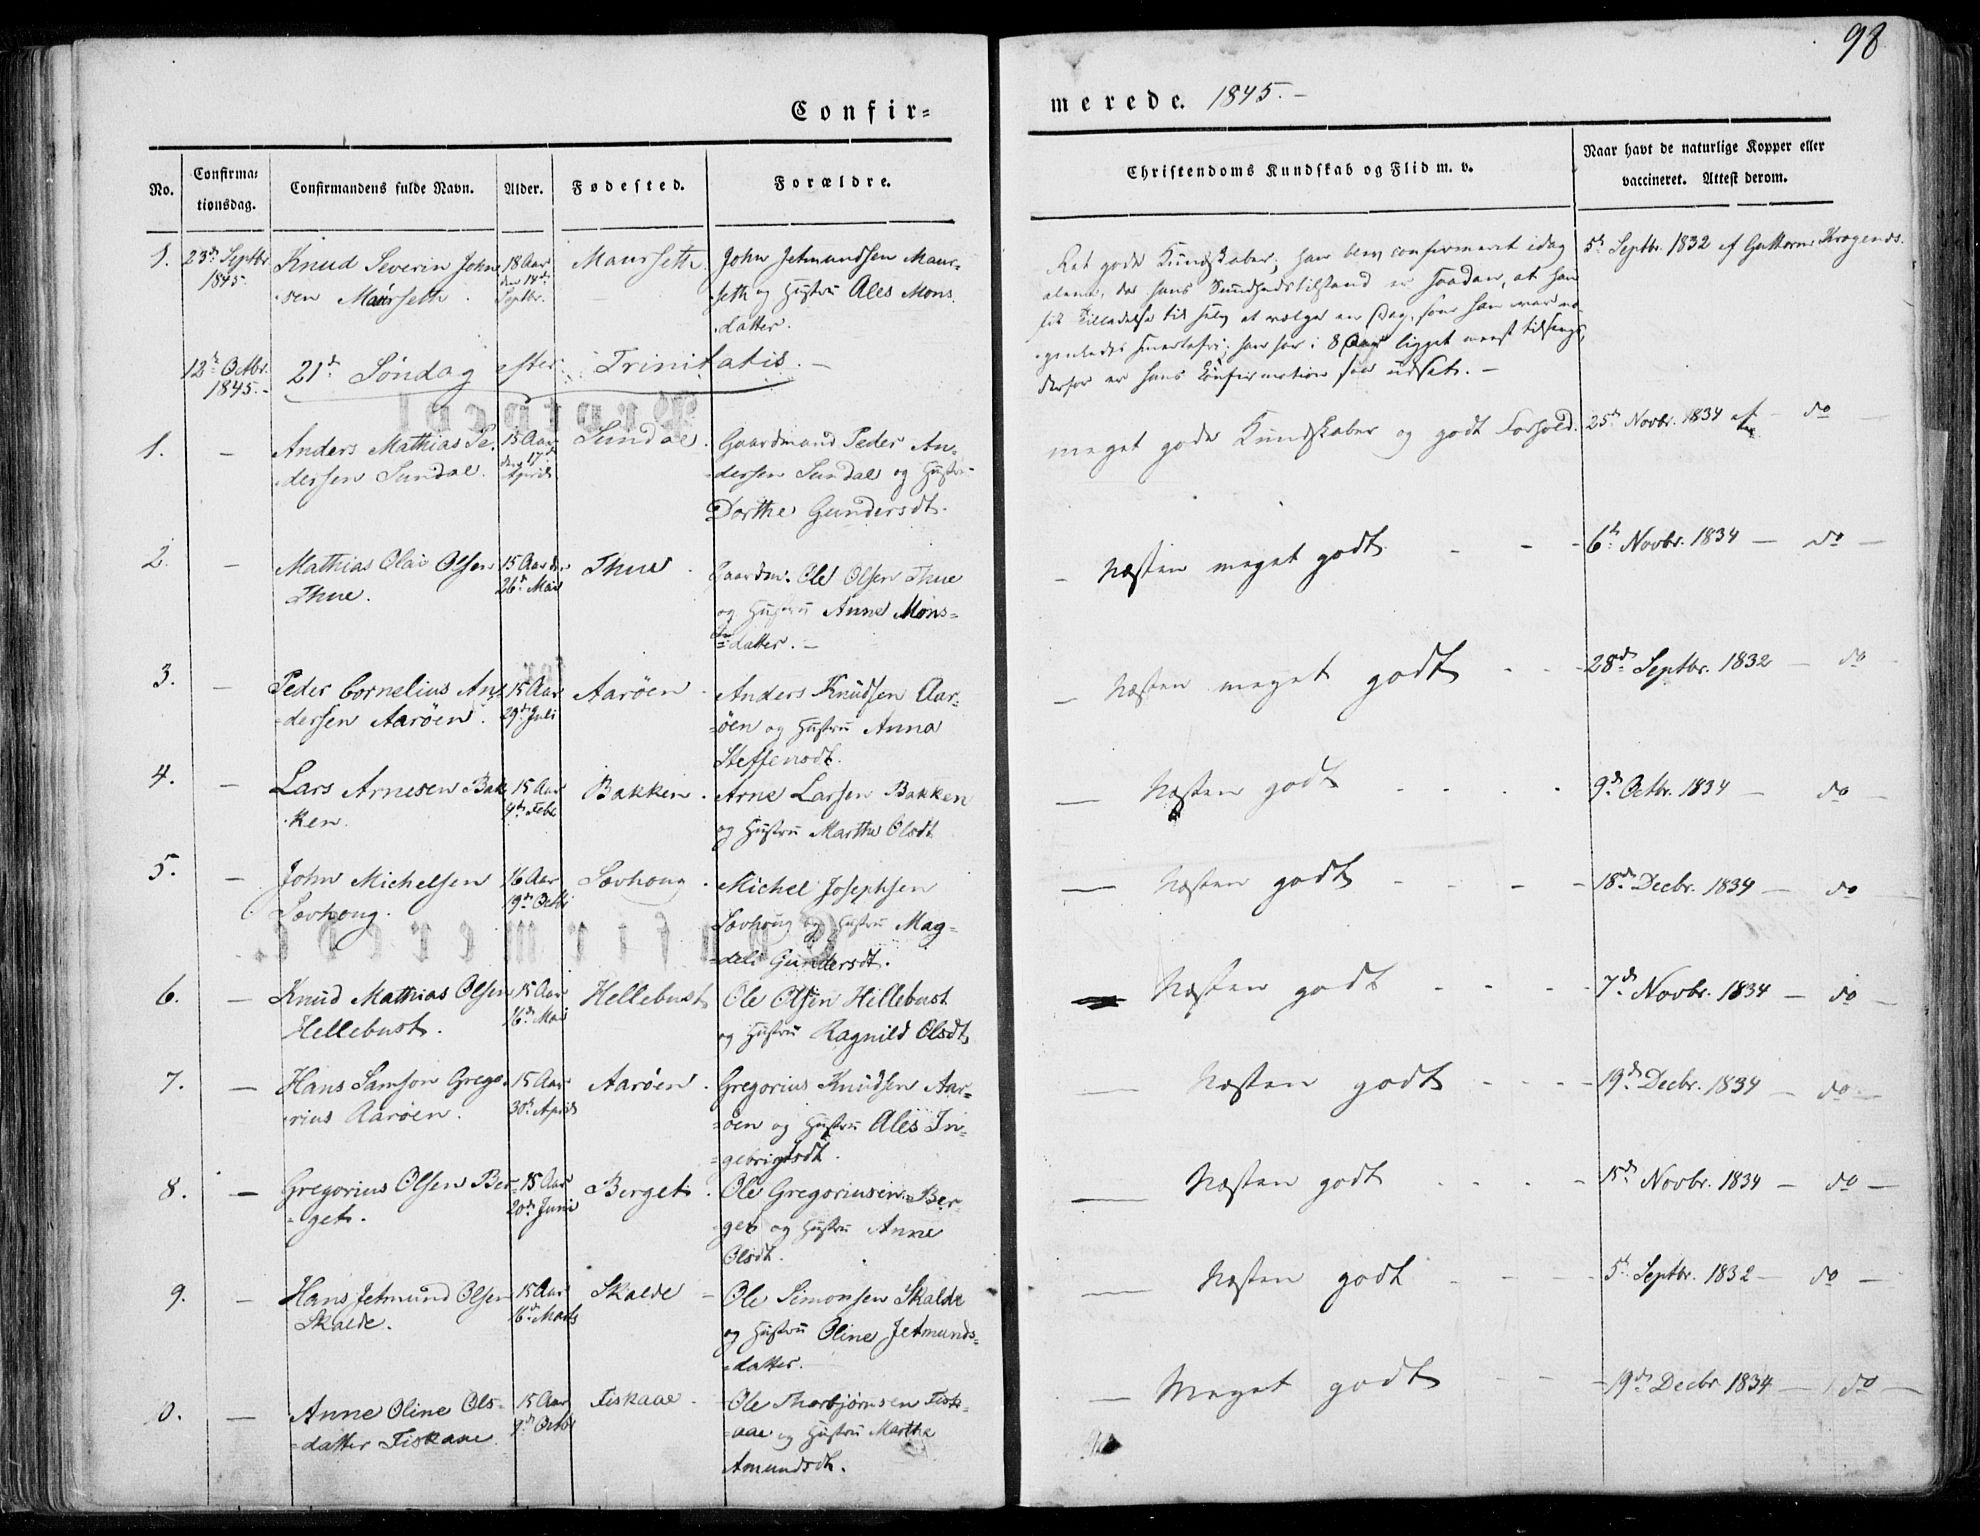 98
Confir=
merede. 1845.-
No.
Confirma=
tionsdag.
Confirmandens fulde Navn.
Alder.
Fødested.
Forældre.
Christendoms Kundskab og Flid m. v.
Naar havt de naturlige Kopper eller
vaccineret. Attest derom.
1. 23de Septbr
1845.
Knud Severin John=
sen Maurseth.
18 Aar
den 14de
Septbr.
Maurseth
John Jetmundsen Maur=
seth og Hustru Ales Mons
datter.
Ret gode Kundskaber; han blev confirmeret idag
alene, da hans Sundhedstilstand er saadan, at han
fik Tilladelse til selv at vælge en Dag, som han var no=
genledes smertefri; han har i 8 Aar ligget meest tilsengs,
derfor er hans Confirmation saa udsat. -
5te Septbr. 1832 af Guttorm Krogenæs.
12te Octbr.
1845.-
21de Søndag efter Trinitatis.-
1. -
Anders Mathias Pe=
dersen Sundal.
15 Aar
den 17de
April
Sundal.
Gaardmand Peder An=
dersen Sundal og Hustru
Dorthe Gundersdt.
meget gode Kundskaber og godt Forhold.
25de Novbr. 1834 af - do -
2. -
Mathias Olai Olsen
Thue.
15 Aar den
26de Mai
Thue -
Gaardm. Ole Olsen Thue
og Hustru Anne Mons=
=datter.-
- Næsten meget godt. - - -
6te Novbr. 1834 - do -
3. -
Peder Cornelius An=
=dersen Aarøen.
15 Aar
29de Juli
Aarøen -
Anders Knudsen Aar=
=øen og Hustru Anna
Steffensdt.
- Næsten meget godt - -
28de Septbr. 1832 - do -
4. -
Lars Arnesen Bak=
ken.
15 Aar
9de Febr
Bakken.
Arne Larsen Bakken
og Hustru Martha Olsdt
- Næsten godt - - - -
9de Octbr. 1834 - do -
5. -
John Michelsen
Sovhoug.
16 Aar
19de Octbr
Sovhoug.
Michel Josephsen
Sovhoug og Hustru Mag=
=deli Gundersdt.
- Næsten godt - - - -
18de Decbr. 1834 - do -
6. -
Knud Mathias Olsen
Hellebust.
15 Aar
16de Mai
Hellebust
Ole Olsen Hillebust
og Hustru Ragnild Olsdt
- Næsten godt - - - -
7de Novbr. 1834 - do -
7. -
Hans Samson Grego=
rius Aarøen.
15 Aar
30de April
Aarøen.
Gregorius Knudsen Aar=
=øen og Hustru Ales In=
=gebrigtsdt.
- Næsten godt - - - -
19de Decbr. 1834 - do -
8. -
Gregorius Olsen Ber=
=get.
15 Aar
20de Juni
Berget.
Ole Gregoriusen Ber=
=get og Hustru Anne
Olsdt.
- Næsten godt - - - -
15de Novbr. 1834 - do -
9. -
Hans Jetmund Olsen
Skalde.
15 Aar
16de Marts
Skalde -
Ole Simonsen Skalde
og Hustru Oline Jetmunds=
=datter.
- Næsten godt - - - -
5te Septbr. 1832 - do -
10. -
Anne Oline Ols=
=datter Fiskaae
15 Aar
9de Octbr
Fiskaae -
Ole Thorbjørnsen Fisk=
=aae og Hustru Martha
Amundsdt.
- Meget godt - - -
19de Decbr 1834 - do -